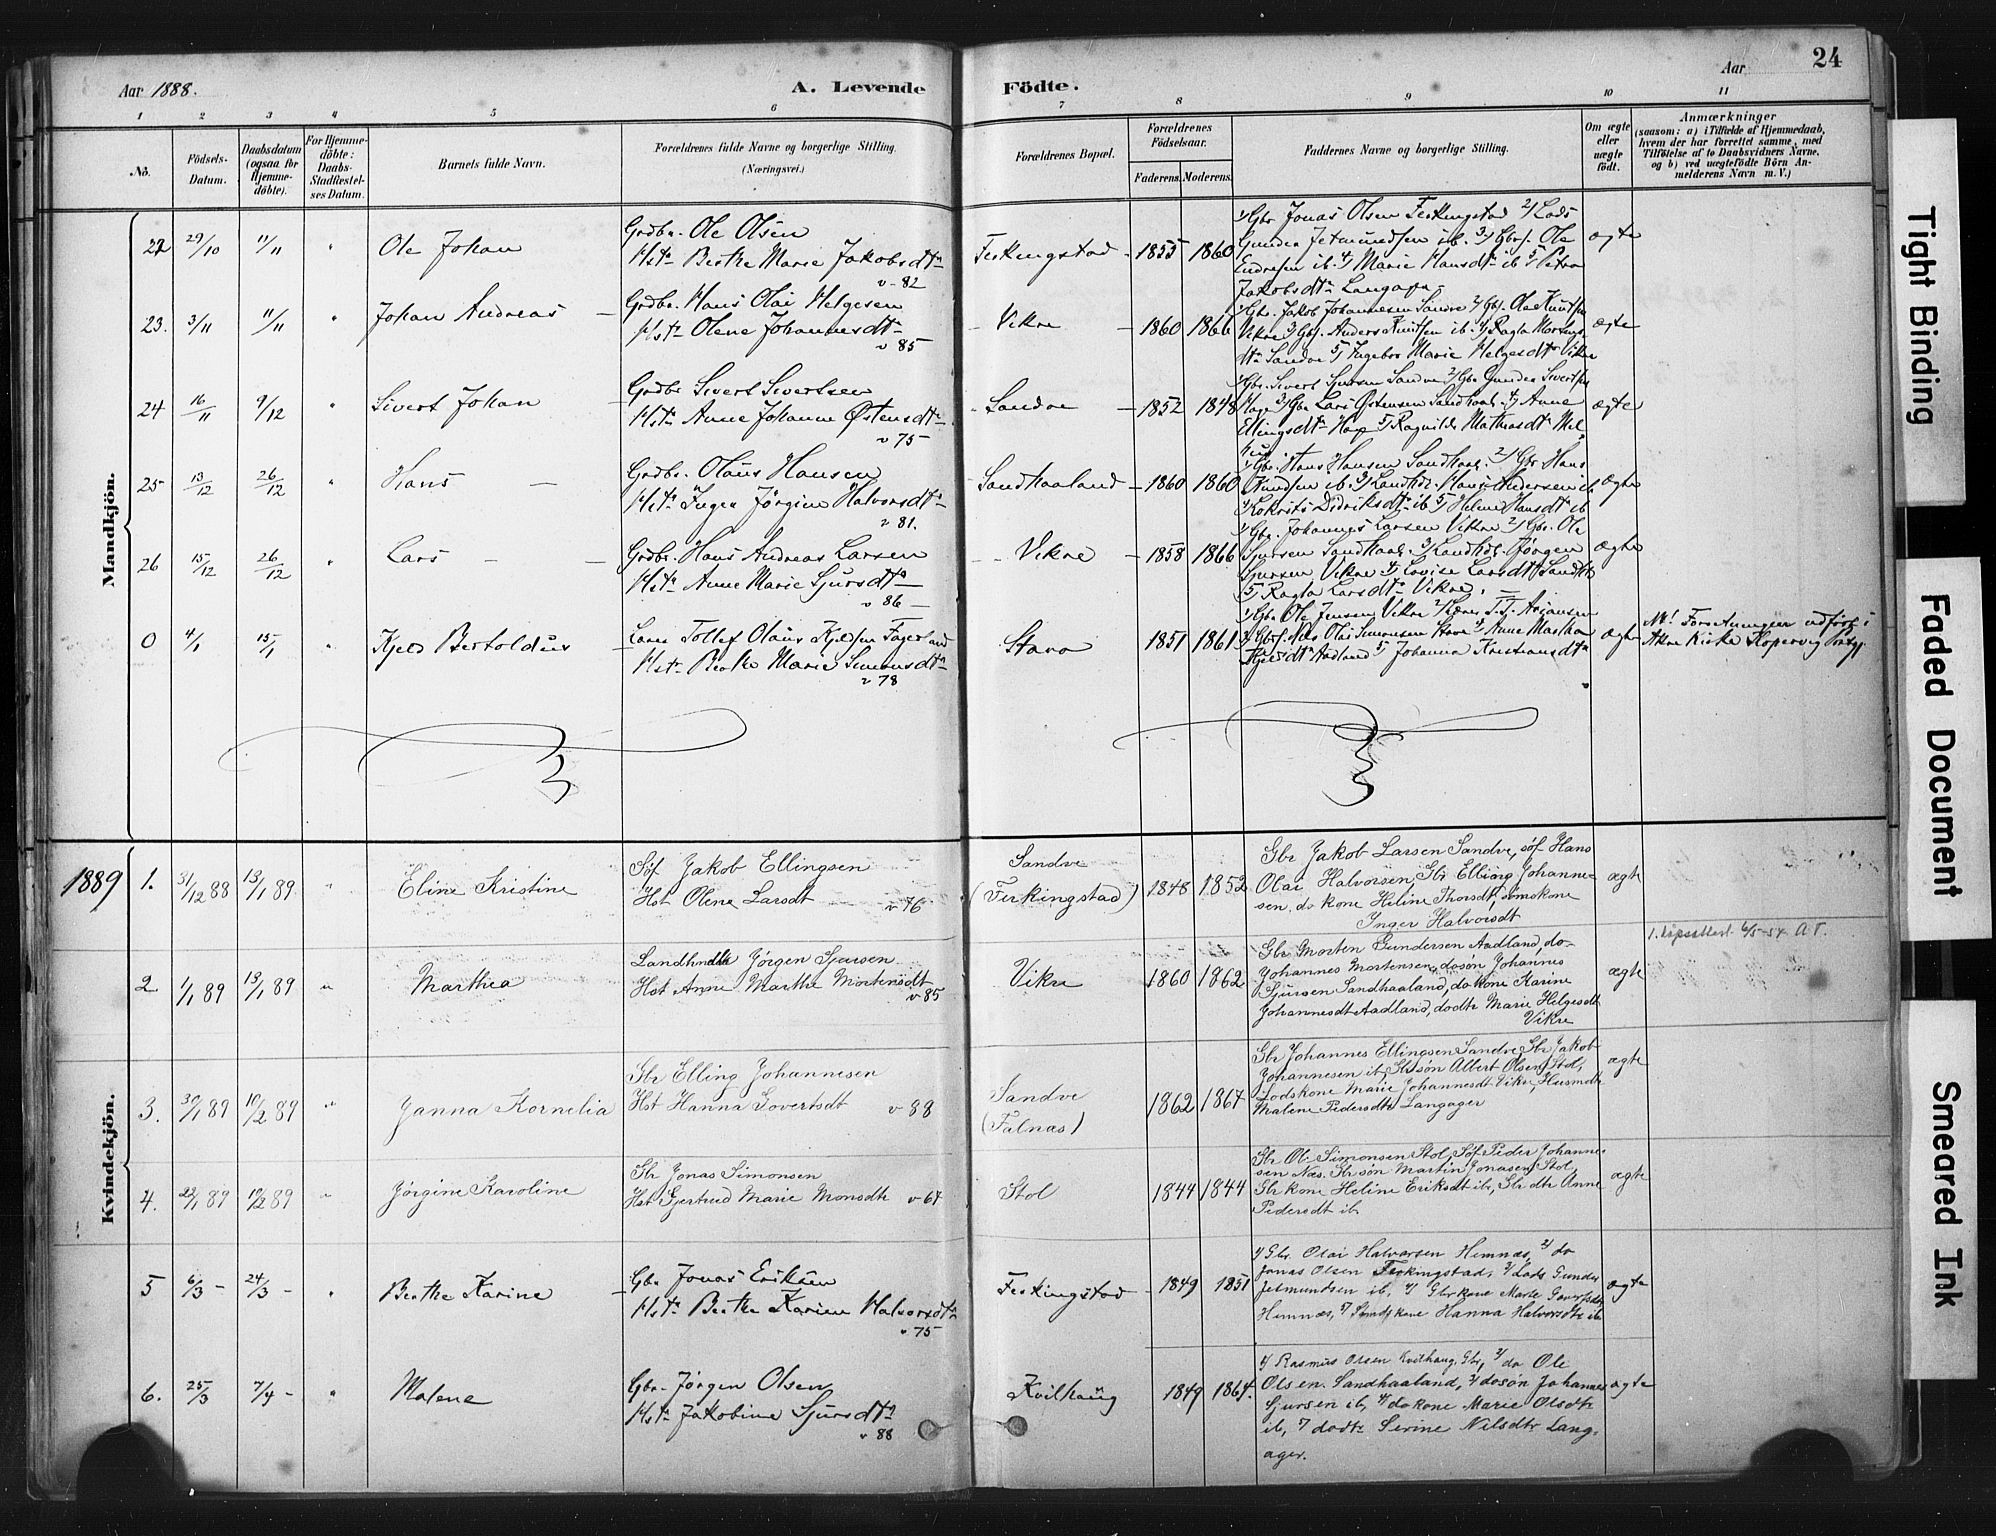 Aar 1888.
A. Levende
Födte.
Aar
24
1 2 3 4 5 6 7 8 9 10 11
No.
Födsels-Datum.
Daabsdatum (ogsaa for Hjemme-döbte).
For Hjemme-döbte: Daabs-Stadfæstel-ses Datum.
Barnets fulde Navn.
Forældrenes fulde Navne og borgerlige Stilling.
(Næringsvei.)
Forældrenes Bopæl.
Forældrenes Födselsaar.
Faderens. Moderens.
Faddernes Navne og borgerlige Stilling.
Om ægte eller uægte födt.
Anmærkninger
(saasom: a) i Tilfælde af Hjemmedaab,
hvem der har forrettet samme, med
Tilföielse af to Daabsvidners Navne,
og b) ved uægtefödte Börn An-
melderens Navn m. V.)
Mandkjön.
22 29/10 11/11 " Ole Johan
Grdbr. Ole Olsen
Hst. Berthe Marie Jakobsdtr
v 82
Ferkingstad 1855 1860
1/ Gbr Jonas Olsen Ferkingstad 2/ Lods
Gunder Jetmundsen ib. 3/ Gbrs. Ole
Endresen ib. 4/ Marie Hansdtr ib 5/ Petra
Jakobsdtr Langager
ægte
23. 3/11 11/11 " Johan Andreas
Grdbr. Hans Olai Helgesen
Hstr Olene Johannesdtr
v 85
Vikre 1860 1866
1/ Gbr. Jakob Johannesen Sandve 2/ Gbs. Ole Knutsen
Vikre 3/ Gbs. Anders Knutsen ib. 4/ Ragla Mortens
dtr Sandve 5/ Ingebor Marie Helgesdtr Vikre
ægte
24 16/11 9/12 " Sivert Johan
Grdbr Sivert Sivertsen
Hstr Anne Johanne Østensdtr
v 75
Sandve 1852 1848
1/ Gbr. Sivert Sjursen Sandve 2/ Gbr Gunder Sivertsen
3/ Gbr Lars Østensen Sandhaal. 4/ Anne
Ellingsdtr 5/ Ragnilde Mathiasdtr
ægte
25 13/12 26/12 " Hans
Grdbr. Olaus Hansen
Hstr Inger Jørgine Halvorsdtr
v 81.
Sandhaaland 1860 1860
1/ Gbr. Hans Hansen Sandhaal. 2/ Gbr Hans
Knudsen ib 3/ Landhdl. Hans Andersen ib
Didriksdtr ib 5/ Helene Hansdtr ib
ægte
26 15/12 26/12 " Lars
Grdbr. Hans Andreas Larsen
Hstr Anne Marie Sjursdtr
v 86
Vikre 1858 1866
1/ Gbr. Johannes Larsen Vikre 2/ Gbr. Ole
Sjursen Sandhaal. 3/ Landhdl. Jørgen
Sjursen Vikre 4/ Lovise Larsdtr Sandhl
5/ Ragla Larsdtr Vikre.
ægte
0 4/1 15/1 " Kjeld Bertoldus
Lærer Tollef Olaus Kjeldsen Fagerland
Hstr Berthe Marie Simonsdtr
v 78
Stava 1851 1861
1/ Gbr Ole Jensen Vikre 2/ Lærer T. T.
3/ Gbrs. Nils Olai Simonsen 4/ Anne Martha
Kjeldsdtr Aadland 5/ Johanna Kristiansdtr
ægte
NB! Forretningen udført i
Akre Kirke Kopervig Prstgj.
Kvindekjön.
1889
1. 31/12 88 13/1 89 " Eline Kristine
Søf Jakob Ellingsen
Hst Olene Larsdt v 76
Sandve
(Ferkingstad) 1848 1852
Gbr Jakob Larsen Sandve, søf Hans
Olai Halvorsen, Gbr Elling Johanne-
sen, do kone Heline Thorsdt, smokone
Inger Halvorsdt
ægte
2. 1/1 89 13/1 89 " Marthea
Landhndlr Jørgen Sjursen
Hst Anne Marthe Mortensdt
v 85
Vikre 1860 1862
Gbr Morten Gundersen Aadland, do-
Johannes Mortensen, dosøn Johannes
Sjursen Sandhaaland, do kone Karine
Johannesdt Aadland, dodtr Marie Helgesdt
Vikre
ægte
1. 6/5-54 A.T.
3. 30/1 89 10/2 89 " Janna Kornelia
Gbr Elling Johannesen
Hst Hanna Sivertsdt v 88
Sandve
(Falnæs) 1862 1867
Gbr Johannes Ellingsen Sandve, Gbr Jakob
Johannesen ib, Gbrsøn Albert Olsen Stol,
Lodskone Marie Johannesdt Vikre, Husmdtr
Malene Pedersdtr Langager
ægte
4. 22/1 89 10/2 89 " Jørgine Karoline
Gbr Jonas Simonsen
Hst Gjertrud Marie Monsdtr v 67
Stol 1844 1844
Gbr Ole Simonsen Stol, Søf Peder Johanne-
sen Næs. Gbrsøn Martin Jonasen Stol,
Gbr kone Heline Eriksdt ib, Gbr dtr Anne
Pedersdt ib
ægte
5 6/3 - 24/3 - " Berthe Karine
Gbr Jonas Eriksen
Hstr Berthe Karine Halvorsdtr
v 75
Ferkingstad 1849 1851
1/ Gbr. Olai Halvorsen Hemnæs, 2/ do
Jonas Olsen Ferkingstad, 3/ Lods Gunder
Jetmundsen ib, 4/ Gbrkone Marte
Hemnæs, 5/ kone Hanna Halvorsdtr ib
ægte
6. 25/3 7/4 - " Malene
Gbr. Jørgen Olsen
Hstr Jakobine Sjursdtr
v 88
Kvilhaug 1849 1864.
1/ Rasmus Olsen Kvilhaug, Gbr, 2/ do Ole
Olsen Sandhaaland, 3/ dosøn Johannes
Sjursen ib, 4/ do kone Marie Olsdtr
ib, 5/ dodtr Serine Nilsdtr Lang-
ager.
ægte
Tight Binding
Faded Document
Smeared Ink